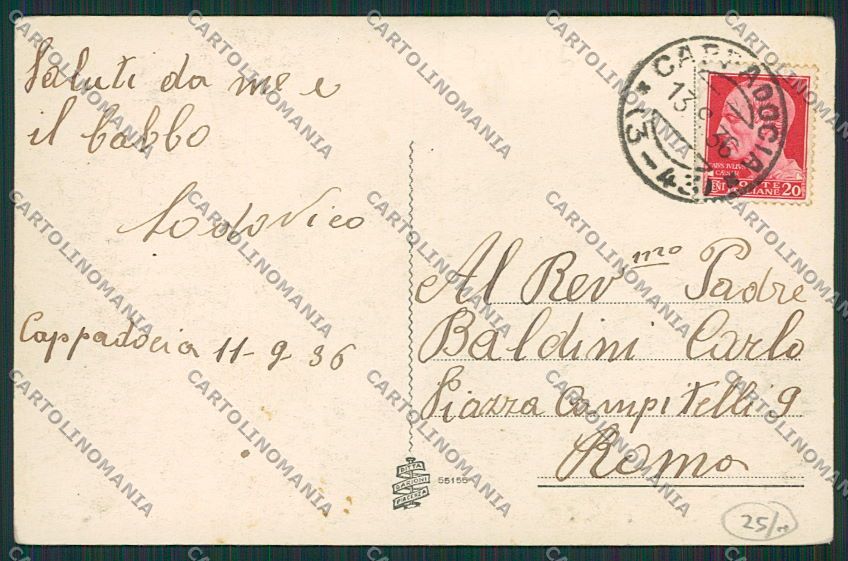 Saluti da me e
il babbo
Lodovico
Cappadocia 11-9-36
CAPPADOCIA
13 9 36
(3-43)
POSTE
ITALIANE
CENT 20
Al Rev.mo Padre
Baldini Carlo
Piazza Campitelli 9
Roma
DITTA
PIACENZA
55155
25/
CARTOLINOMANIA